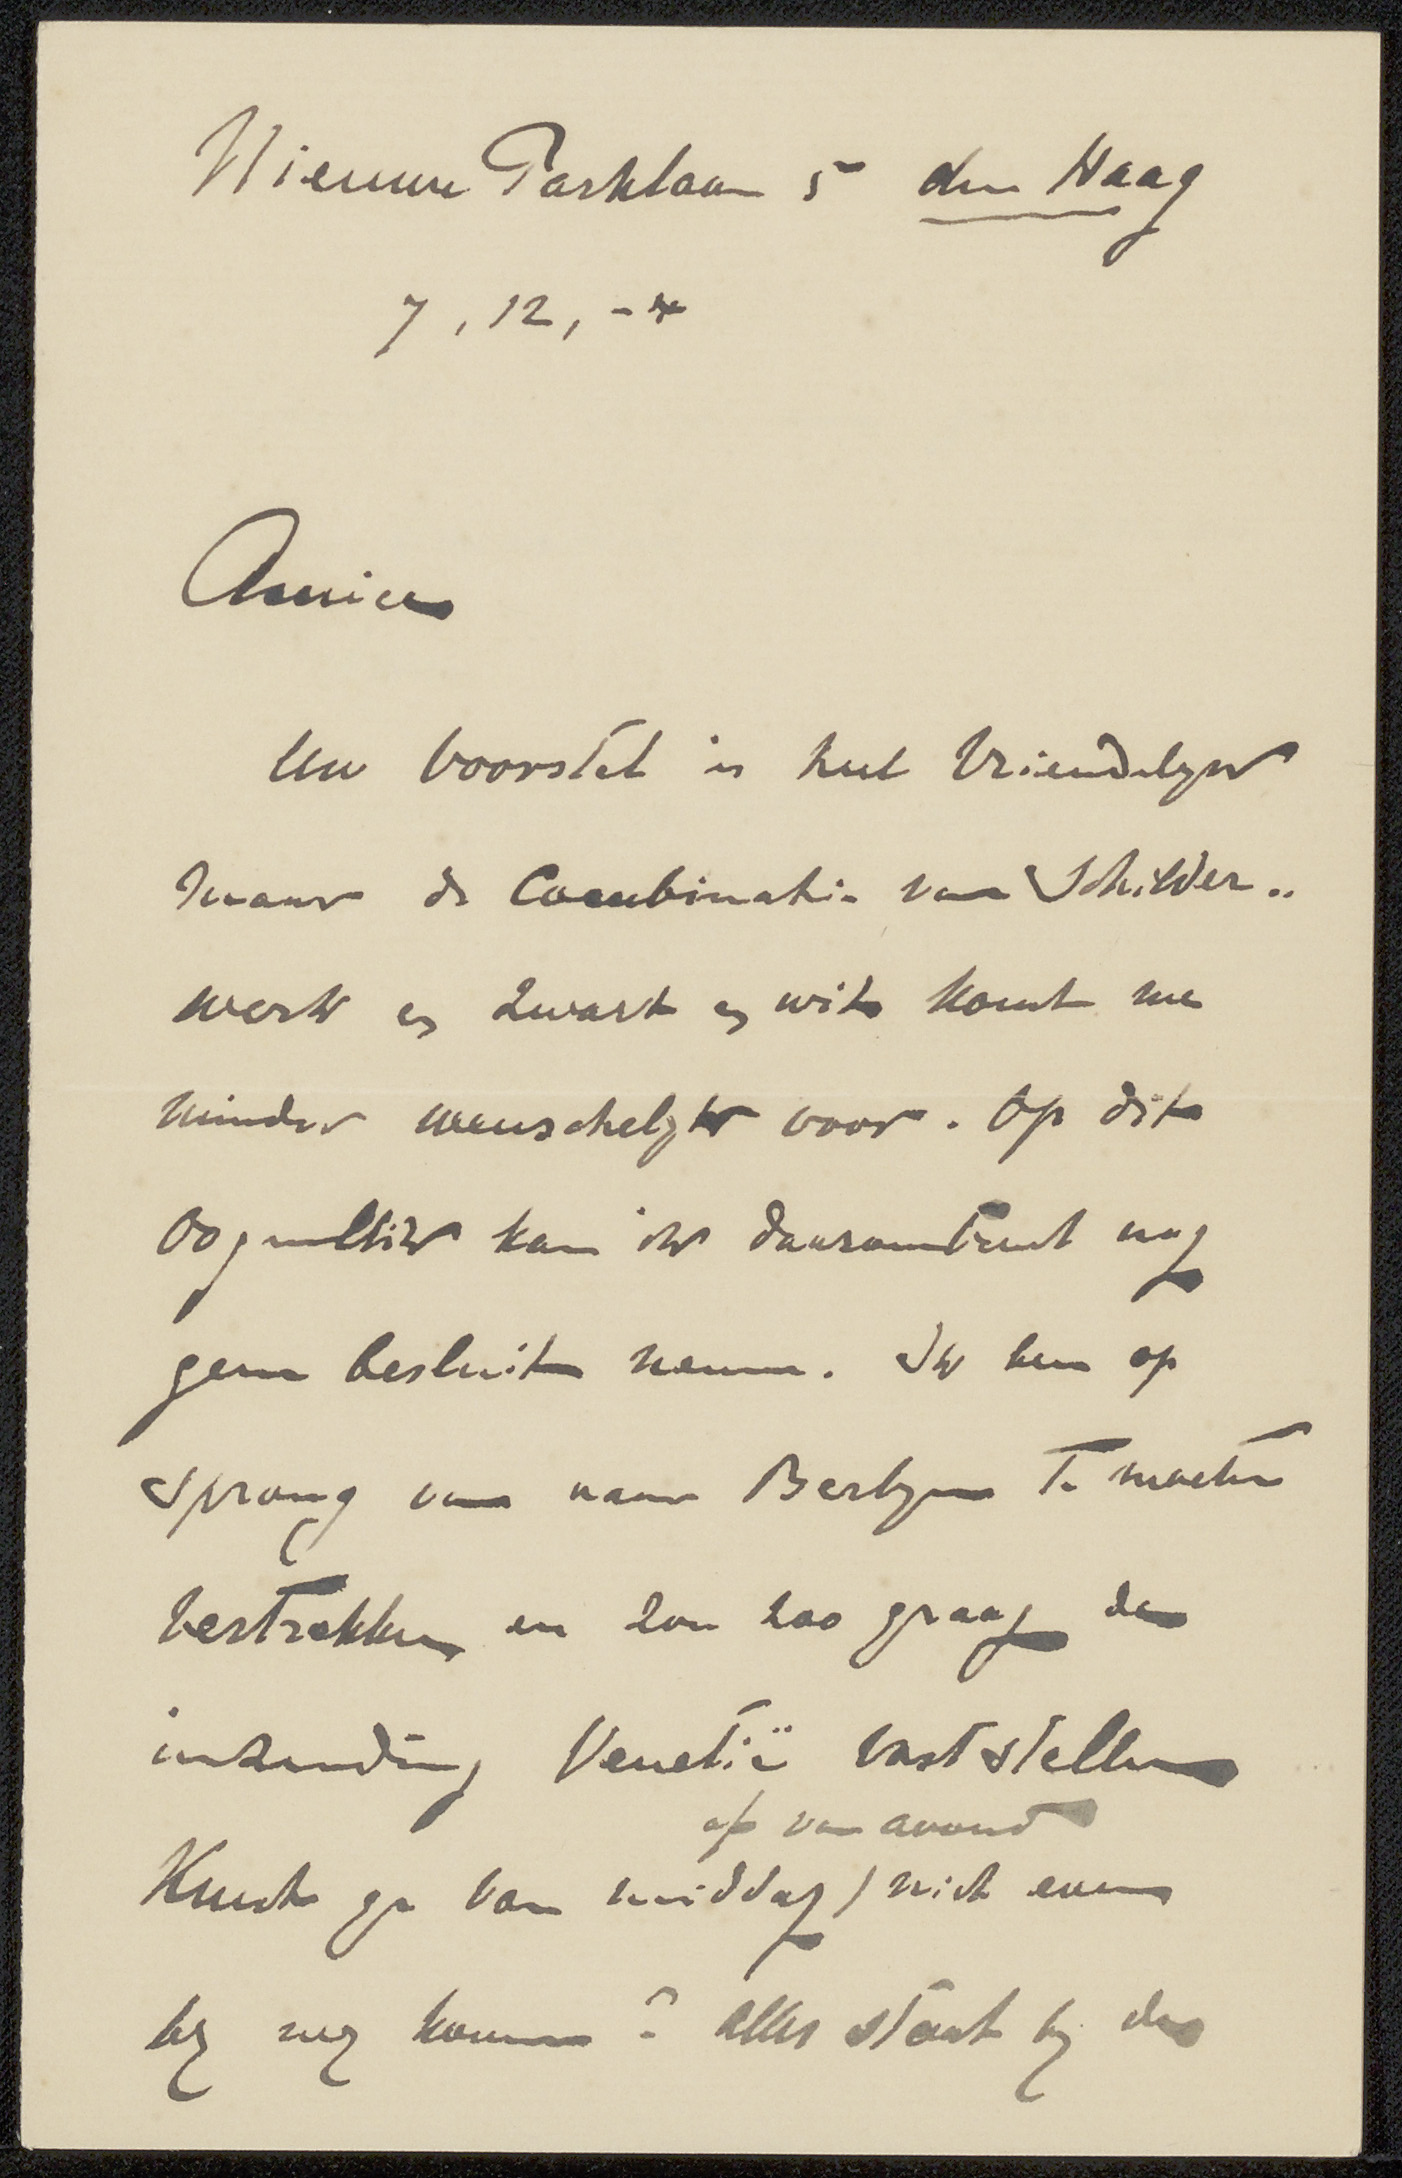 Nieuwe Parklaan 5 den Haag
7, 12, -
Amice
Uw voorstel is heel vriendelyk
maar de Combinatie van Schilder..
werk en zwart en wit komt me
minder wenschelyk voor. Op dit
oogenblik kan ik daaromtrent nog
geen besluit nemen. Ik ben op
sprong om naar Berlyn te moeten
vertrekken en zou zoo graag de
inzending Venetië vaststellen
of van avond
Kunt ge van middag / niet even
by my komen? Alles staat by de